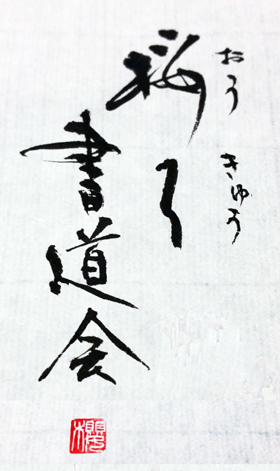 おう きゅう
桜弓
書道会
櫻